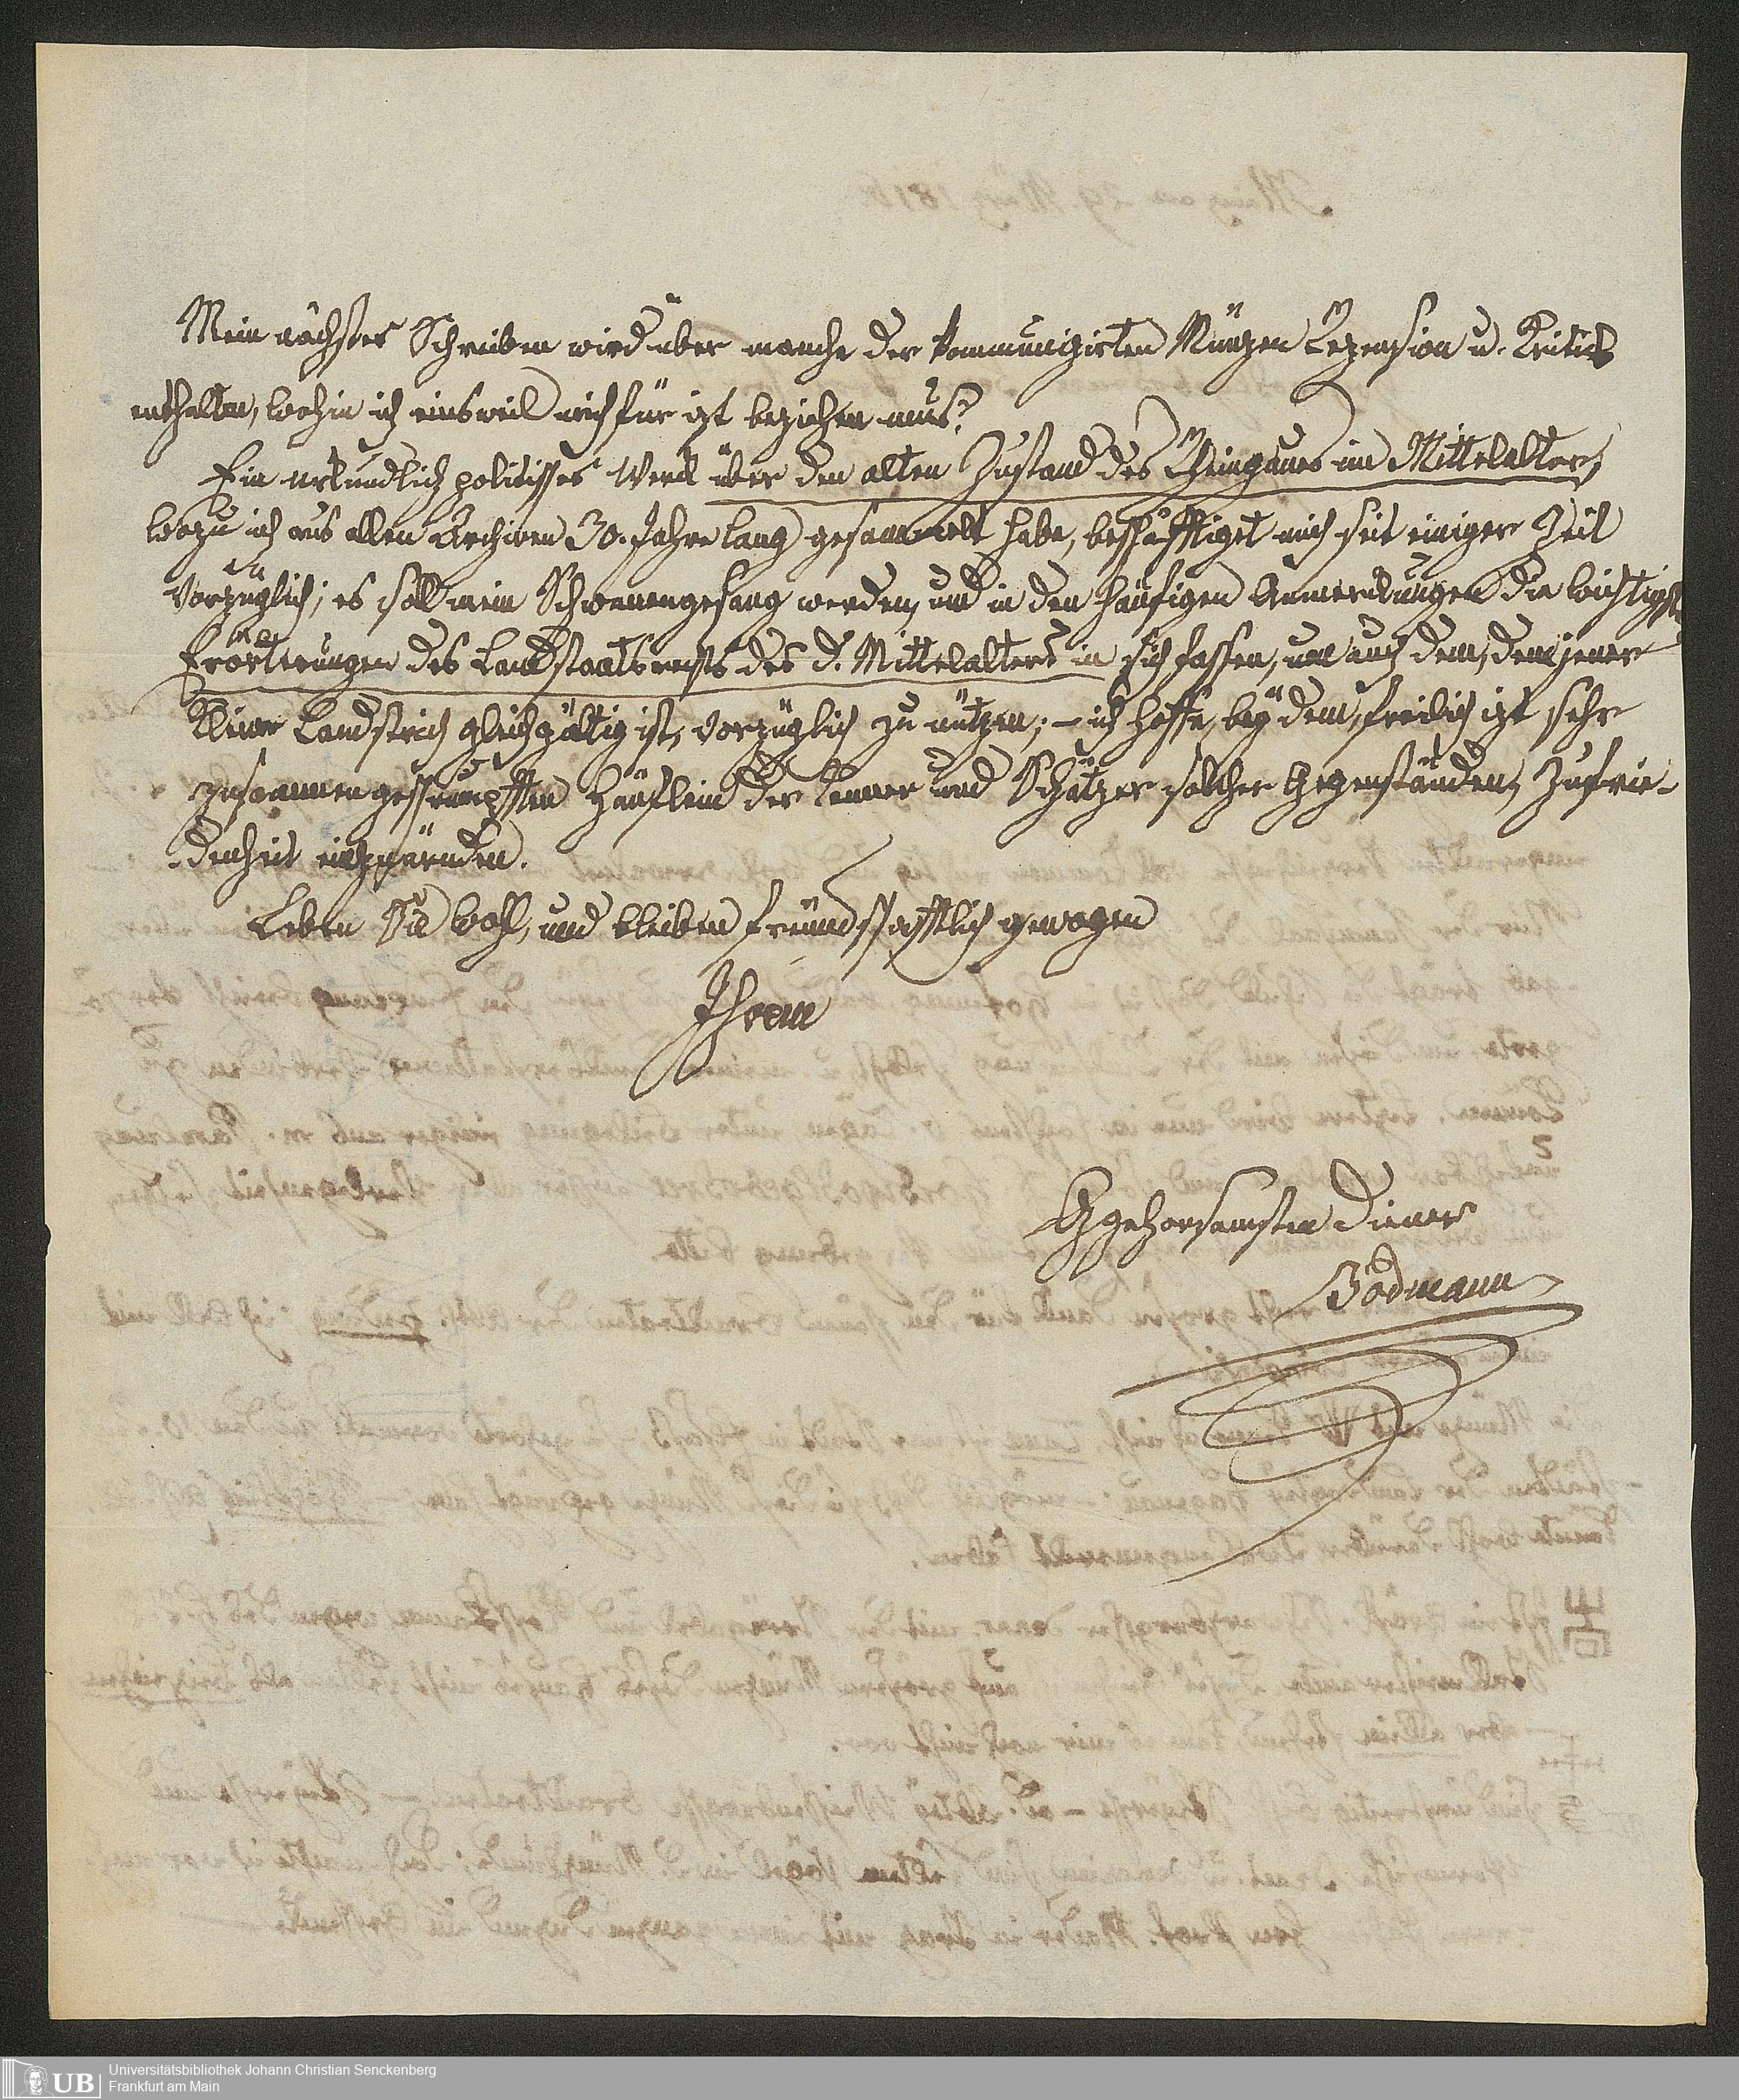 Mein nächstes Schreiben wird über manche der kommunizirten Münzen Rezension u. Kritick
enthalten, wohin ich einsweil mich für izt beziehen mus.
Ein urkundlich politisches Werck über den alten Zustand des Rheingaues im Mittelalter,
wozu ich aus allen Archiven 30. Jahre lang gesammelt habe, beschäfftiget mich seit einiger Zeit
vorzüglich; es soll mein Schwanengesang werden, und in den häufigen Anmerckungen die wichtigst
Erörterungen des Landstaatsrechts des d. Mittelalters in sich fassen, um auch dem, dem jener
kleine Landstrich gleichgültig ist, vorzüglich zu nützen; – ich hoffe, bey dem, freilich izt sehr
zusammengeschrumpfften Häuflein der Kenner und Schätzer solcher Gegenständen, Zufrie-
denheit
Leben Sie wohl, und bleiben freundschafftlich gewogen
Ihrem
gehorsamsten Diener
Bodmann
UB
Universitätsbibliothek Johann Christian Senckenberg
Frankfurt am Main